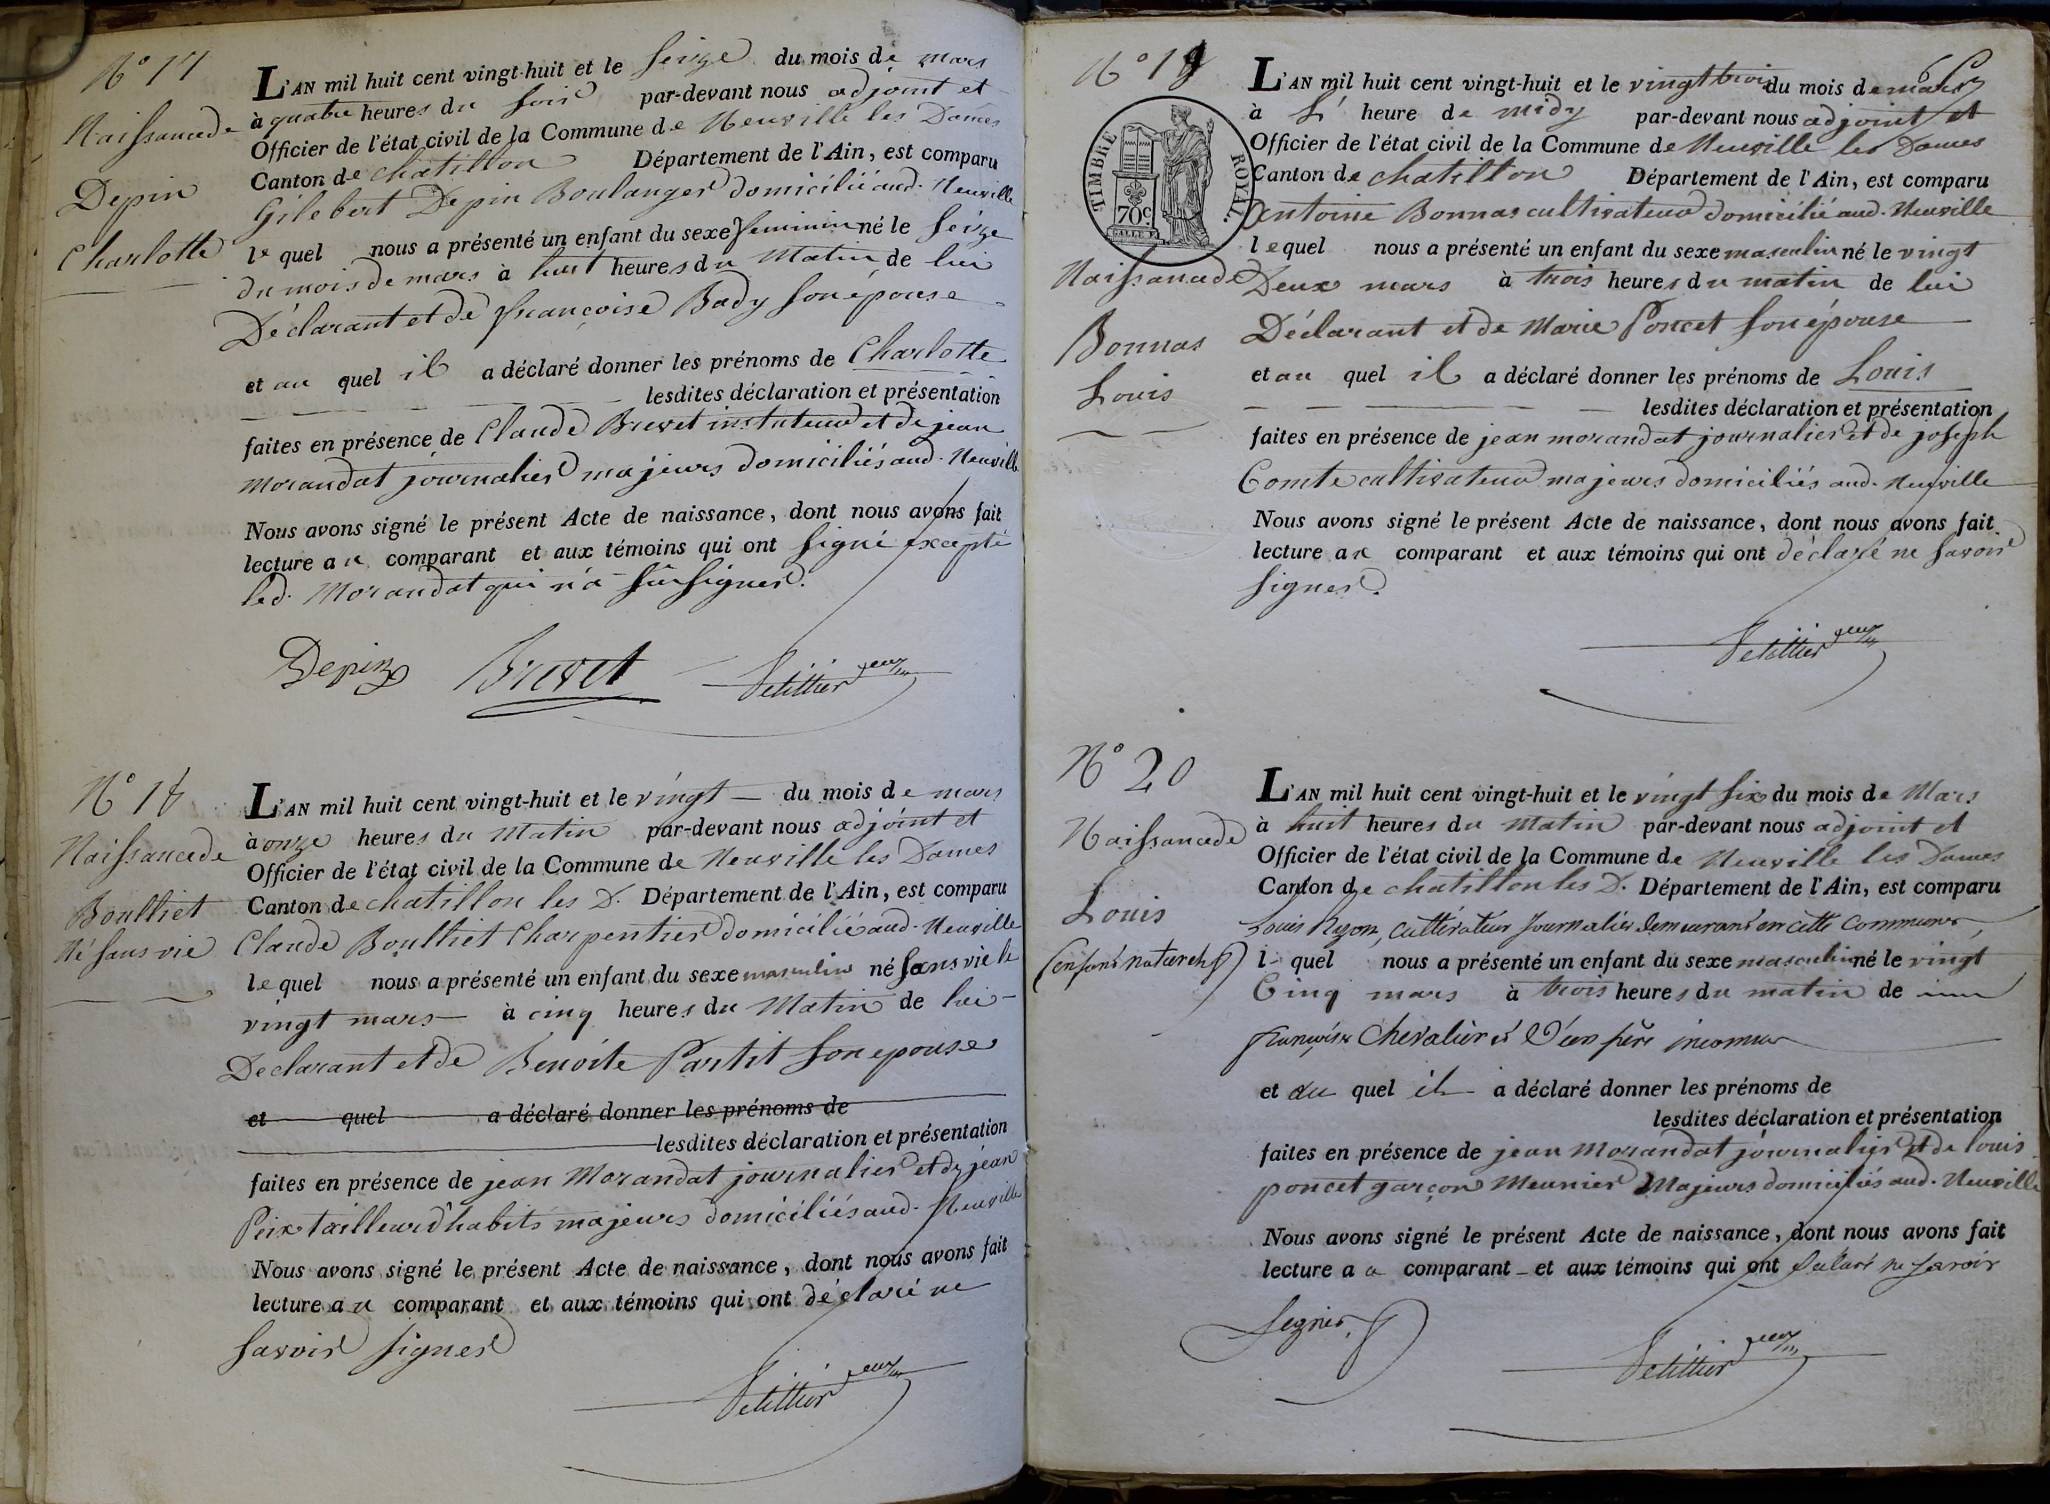 N° 17
Naissance de
Depin
Charlotte
L'AN mil huit cent vingt-huit et le seize du mois de mars
à quatre heures du soir par-devant nous adjoint et
Officier de l'état civil de la Commune de Neuville les Dames
Canton de chatillon Département de l'Ain, est comparu
Gilebert Depin Boulanger domicilié aud. Neuville
lequel nous a présenté un enfant du sexe feminin né le seize
du mois de mars à huit heures du Matin de lui
Déclarant et de françoise Bady son epouse
et au quel il a déclaré donner les prénoms de Charlotte
lesdites déclaration et présentation
faites en présence de Claude Brevet instituteur et de jean
Morandat journalier majeurs domiciliés aud. Neuville
Nous avons signé le présent Acte de naissance, dont nous avons fait
lecture au comparant et aux témoins qui ont signé excepté
led. Morandat qui n'a sû signer.
Depin Brevet Petittier
N° 18
Naissance de
Boulliet
Né sans vie
L'AN mil huit cent vingt-huit et le vingt du mois de mars
à onze heures du Matin par-devant nous adjoint et
Officier de l'état civil de la Commune de Neuville les Dames
Canton de chatillon les D. Département de l'Ain, est comparu
Claude Boulliet Charpentier domicilié aud. Neuville
lequel nous a présenté un enfant du sexe masculin né sans vie le
vingt mars à cinq heures du Matin de lui
Declarant et de Benoite Partit son epouse
et quel a déclaré donner les prénoms de
lesdites déclaration et présentation
faites en présence de jean Morandat journalier et de jean
Peix tailleur d'habits majeurs domiciliés aud. Neuville
Nous avons signé le présent Acte de naissance, dont nous avons fait
lecture au comparant et aux témoins qui ont déclaré ne
savoir signer
Petittier
N° 19
TIMBRE ROYAL
70c
Naissance de
Bonnas
Louis
L'AN mil huit cent vingt-huit et le vingt trois du mois de mars
à L' heure de midy par-devant nous adjoint et
Officier de l'état civil de la Commune de Neuville les Dames
Canton de chatillon Département de l'Ain, est comparu
Antoine Bonnas cultivateur domicilié aud. Neuville
lequel nous a présenté un enfant du sexe masculin né le vingt
Deux mars à trois heures du matin de lui
Déclarant et de Marie Poncet son épouse
et au quel il a déclaré donner les prénoms de Louis
lesdites déclaration et présentation
faites en présence de jean morandat journalier et de joseph
Comte cultivateur majeurs domiciliés aud. Neuville
Nous avons signé le présent Acte de naissance, dont nous avons fait
lecture au comparant et aux témoins qui ont déclaré ne savoir
signer.
Petittier
N° 20
Naissance de
Louis
(enfant naturel)
L'AN mil huit cent vingt-huit et le vingt six du mois de Mars
à huit heures du Matin par-devant nous adjoint et
Officier de l'état civil de la Commune de Neuville les Dames
Canton de chatillon les D. Département de l'Ain, est comparu
Louis cultivateur journalier demeurant en cette commune,
lequel nous a présenté un enfant du sexe masculin né le vingt
Cinq mars à trois heures du matin de
françoise Chevalier et d'un père inconnu
et au quel il a déclaré donner les prénoms de
lesdites déclaration et présentation
faites en présence de jean Morandat journalier et de louis
poncet garçon Meunier Majeurs domiciliés aud. Neuville
Nous avons signé le présent Acte de naissance, dont nous avons fait
lecture au comparant et aux témoins qui ont déclaré ne savoir
signer.
Petittier